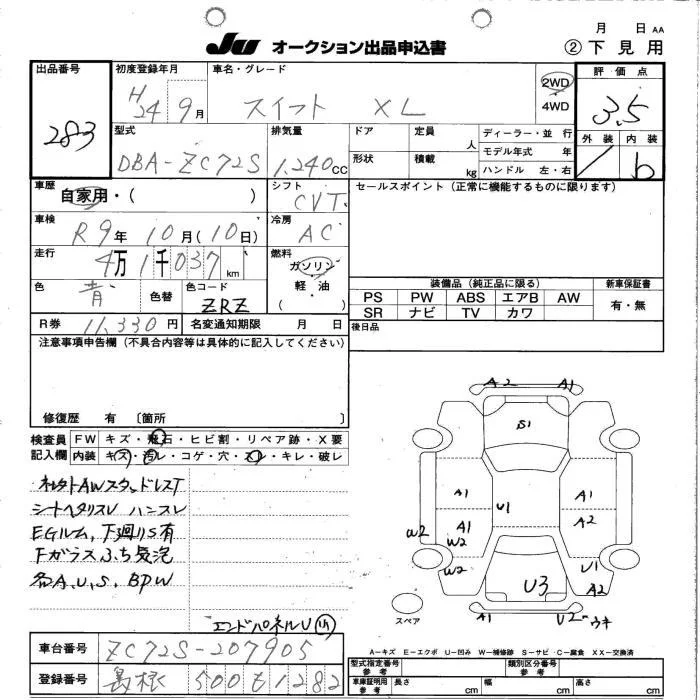 月 日 AA
JU オークション出品申込書
② 下見用
出品番号
283
初度登録年月
H24年9月
車名・グレード
スイフト XL
2WD
4WD
評価点
3.5
外装 内装
b
型式
DBA-ZC72S
排気量
1,240cc
ドア
定員 人
形状
積載 kg
ディーラー・並行
モデル年式 年
ハンドル 左・右
車歴
自家用・( )
シフト
CVT
セールスポイント(正常に機能するものに限ります)
車検
R9年10月(10日)
冷房
AC
走行
4万1千037km
燃料
ガソリン
軽油
( )
色
青
色替
色コード
ZRZ
装備品(純正品に限る)
新車保証書
PS PW ABS エアB AW
SR ナビ TV カワ
有・無
R券 11,330円
名変通知期限 月 日
後日品
注意事項申告欄(不具合内容等は具体的に記入してください)
修復歴 有 〔箇所 〕
検査員記入欄
FW キズ・飛石・ヒビ割・リペア跡・X要
内装 キズ・汚レ・コゲ・穴・スレ・キレ・破レ
シートヘタリスレ ハンスレ
EGルム、下廻りS有
Fガラスふち気泡
各A、U、S、BPW
エンドパネルU
A2 A1
B1
A1 A1
U1 A2
A1
W2
W2
W2
U1
A2
U3
A1 U2 ウキ
スペア
A-キズ E-エクボ U-凹み W-補修跡 S-サビ・C-腐食 XX-交換済
車台番号
ZC72S-207905
登録番号
島根 500 1282
型式指定番号 参考
類別区分番号 参考
車庫証明用 参考
長さ cm
幅 cm
高さ cm